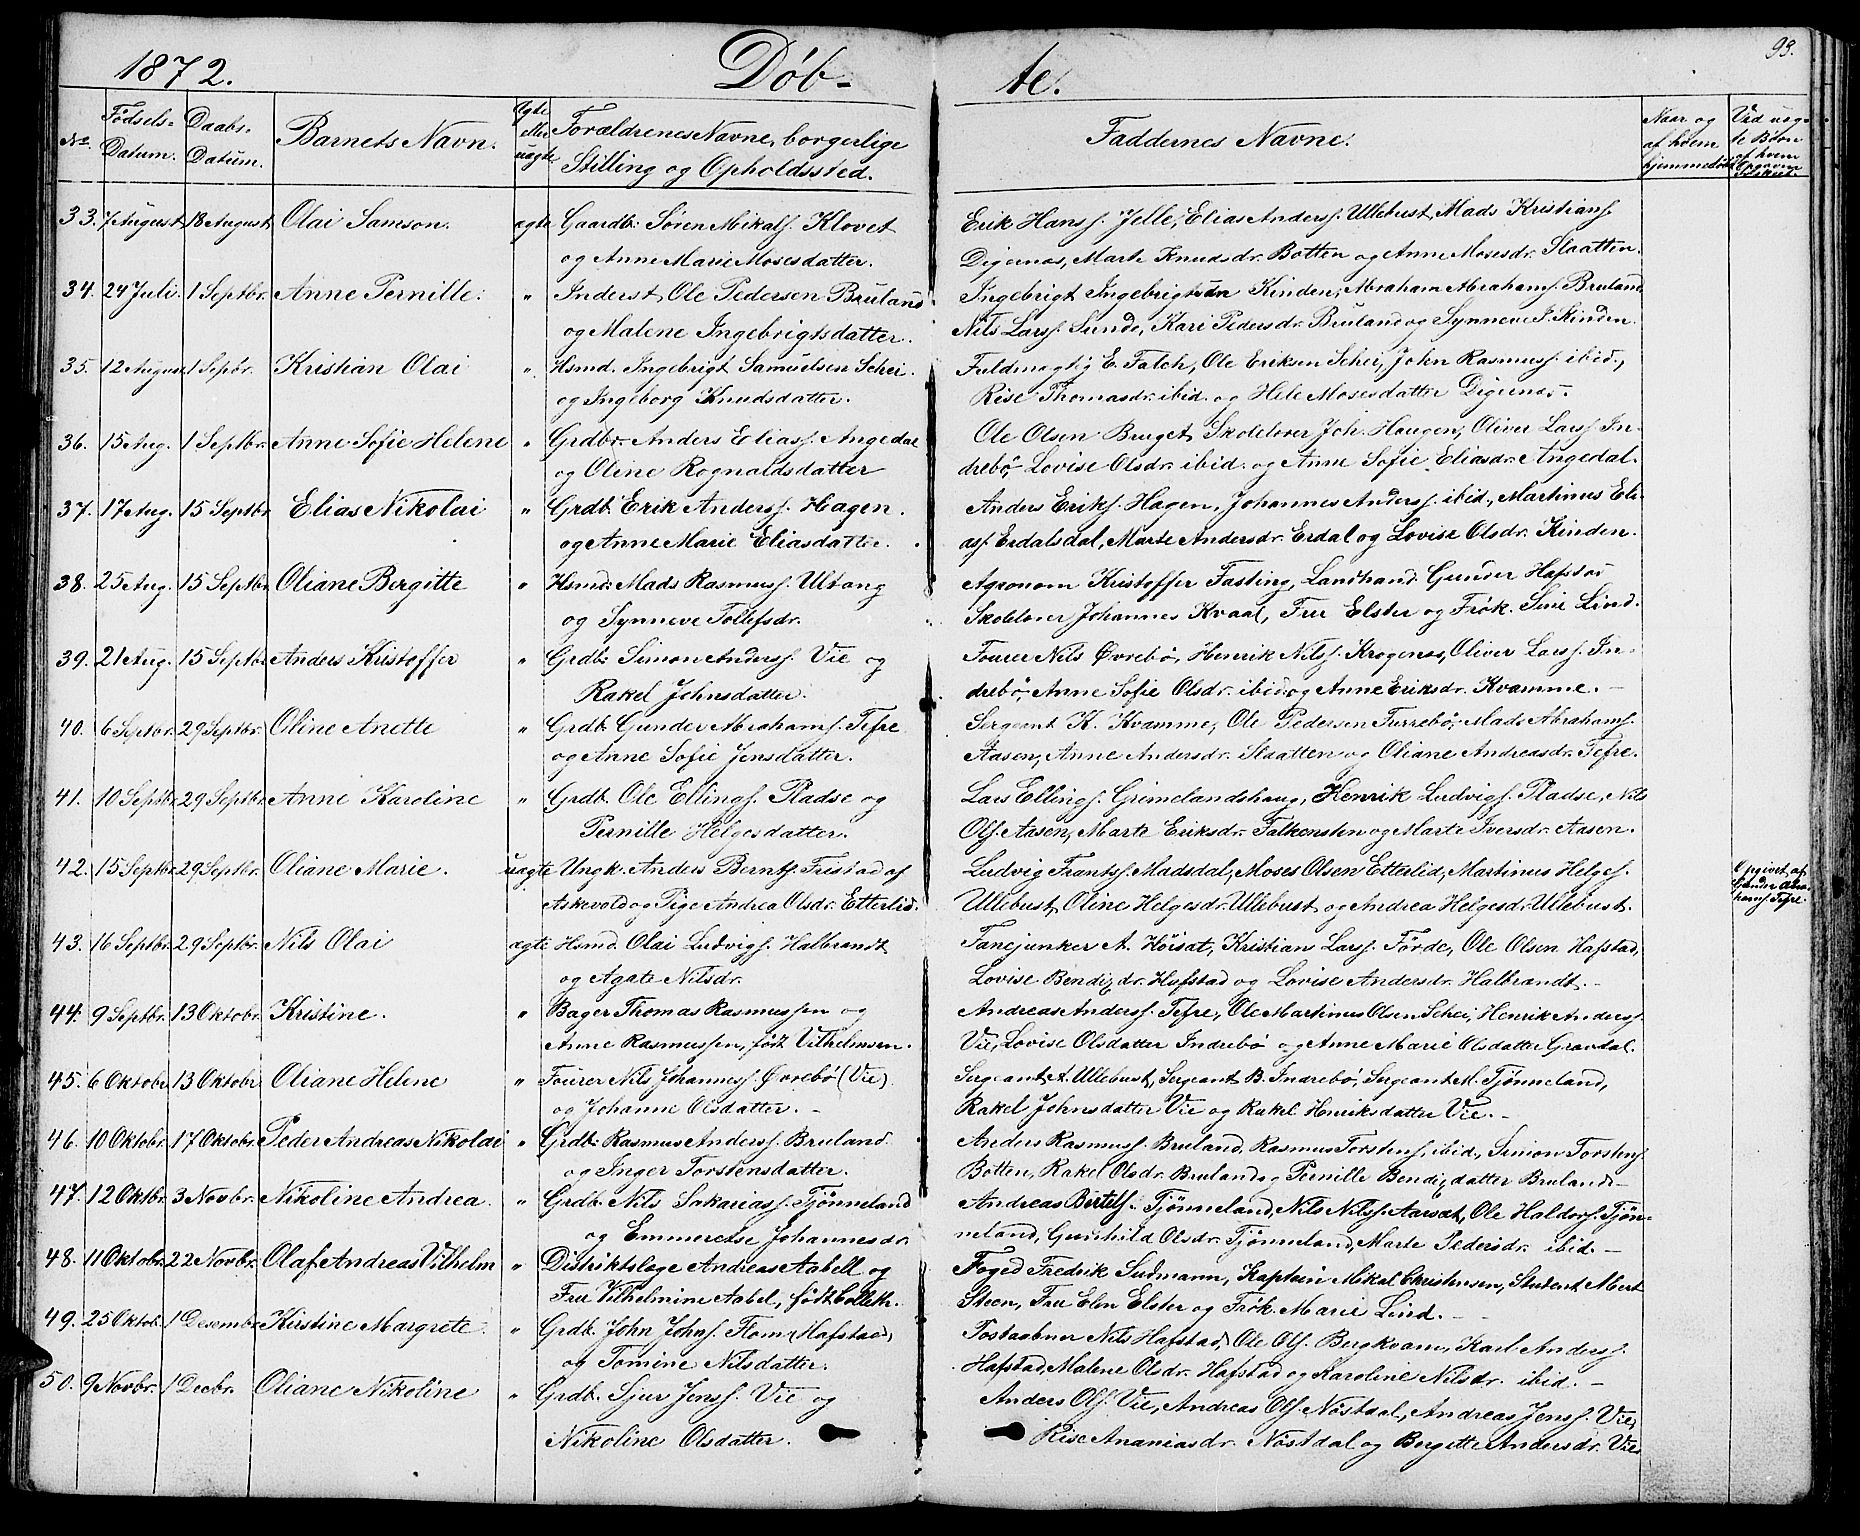 1872. Døb- te. 93.
No. Fødsels- Datum. Daabs- Datum. Barnets Navn. Ægte eller uægte Forældrenes Navne, borgerlige Stilling og Opholdssted. Faddernes Navne. Naar og af hvem hjemmedøbt Vid uægte Børn af hvem Opgaven
33. 7 August 18 August Olai Samson. ægte Gaardb: Søren Mikals. Klovet Erik Hanss. Jelle, Elias Anderss. Ullebust, Mads Kristians.
og Anne Marie Mosesdatter. Digernæs, Marte Knudsdr. Botten og Anne Mosesdr. Slaatten.
34. 24 Juli. 1 Septbr. Anne Pernille. " Inderst Ole Pedersen Bruland Ingebrigt Ingebrigtsen Kinden, Abraham Abrahams. Bruland
og Malene Ingebrigtsdatter. Nils Larss. Sunde, Kari Pedersdr. Bruland og Synneve I. Kinden.
35. 12 August 1 Sepbr. Kristian Olai " Hsmd. Ingebrigt Samuelsen Schei. Fuldmægtig E. Falch, Ole Eriksen Schei, John Rasmuss. ibid.,
og Ingeborg Knudsdatter. Rise Thomasdr. ibid. og Hele Mosesdatter Digernæs.
36. 15 Aug. 1 Septbr. Anne Sofie Helene " Grdbr. Anders Eliass. Angedal Ole Olsen Bruget, Skolelærer Joh. Haugen, Oliver Larss. In-
og Oline Rognaldsdatter drebø, Lovise Olsdr. ibid. og Anne Sofie Eliasdr. Angedal.
37. 17 Aug. 15 Septbr. Elias Nikolai " Grdb. Erik Anderss. Hagen. Anders Eriks. Hagen, Johannes Anderss. ibid., Martinus Eli-
og Anne Marie Eliasdatter. ass. Erdalsdal, Marte Andersdr. Erdal og Lovise Olsdr. Kinden.
38. 25 Aug. 15 Septbr. Oliane Bergitte " Hsmd: Mads Rasmuss. Ulvang Agronom Kristoffer Fasting, Landhand. Gunder Hafstad
og Synneve Tollefsdr. Skolelærer Johannes Kvaal, Fru Elster og Frøk. Sine Lind.
39. 21 Aug. 15 Septbr Anders Kristoffer " Grdb: Simon Anderss. Vie og Fourer Nils Øvrebø, Henrik Nilss. Krogenæs, Oliver Larss. In-
Rakel Johnsdatter. drebø, Anne Sofie Olsdr. ibid og Anne Eriksdr. Kvamme. -
40. 6 Septbr. 29 Septbr. Oline Anette " Grdb. Gunder Abrahams. Tefre Sergeant K. Kvamme, Ole Pedersen Furrebø, Mads Abrahams.
og Anne Sofie Jensdatter. Aasen, Anne Andersdr. Slaatten og Oliane Andreasdr. Tefre.
41. 10 Septbr. 29 Septbr. Anne Karoline " Grdb. Ole Ellings. Pladse og Lars Ellings. Grimelandshaug, Henrik Ludvigs. Pladse, Nils
Pernille Helgesdatter. Ols. Aasen, Marte Eriksdr. Falkensten og Marte Iversdr. Aasen.
42. 15 Septbr. 29 Septbr. Oliane Marie. uægte Ungk. Anders Bernts. Fristad af Ludvig Frantss. Madsdal, Moses Olsen Etterlid, Martinus Helges. Opgivet af
Askevold og Pige Andrea Olsdr. Etterlid. Ullebust, Oline Helgesdr. Ullebust og Andrea Helgesdr. Ullebust. Gunder Abra-
hams Tefre.
43. 16 Septbr. 29 Septbr. Nils Olai ægte Hsmd. Olai Ludvigs. Halbrandt Fanejunker A. Høisæt, Kristian Larss. Førde, Ole Olsen Hafstad,
og Agate Nilsdr. Lovise Bendixdr. Hafstad og Lovise Andersdr. Halbrandt. -
44. 9 Septbr. 13 Oktobr. Kristine. " Bager Thomas Rasmussen og Andreas Anderss. Tefre, Ole Martinus Olsen Schei, Henrik Anderss.
Anne Rasmussen, født Vilhelmsen. Vie, Lovise Olsdatter Indrebø og Anne Marie Olsdatter Gravdal.
45. 6 Oktobr 13 Oktobr. Oliane Helene " Fourer Nils Johanness. Øvrebø (Vie) Sergeant A. Ullebust, Sergeant B. Indrebø, Sergeant M. Tjønneland,
og Johanne Olsdatter. - Rakel Johnsdatter Vie og Rakel Henriksdatter Vie. -
46. 10 Oktobr. 17 Oktobr. Peder Andreas Nikolai " Grdb: Rasmus Anderss. Bruland. Anders Rasmuss. Bruland, Rasmus Torstens. ibid., Simon Torstens.
og Inger Torstensdatter. Botten, Rakel Olsdr. Bruland og Pernille Bendixdatter Bruland. -
47. 12 Oktbr. 3 Novbr. Nikoline Andrea. " Grdb. Nils Sakariass. Tjønneland Andreas Bertels. Tjønneland, Nils Nilss. Aarsæt, Ole Haldors. Tjøn-
og Emmeretse Johannesdr. neland, Gunhild Olsdr. Tjønneland, Marte Pedersdr. ibid. -
48. 11 Oktobr. 22 Novbr. Olaf Andreas Vilhelm " Distriktslæge Andreas Aabell og Foged Fredrik Sudmann, Kaptein Mikal Christensen, Student Mært
Fru Vilhelmine Aabel, født Colleth. Steen, Fru Elen Elster og Frøk. Marie Lind. -
49. 25 Oktob. 1 Desembr. Kirstine Margrete. " Grdb. John Johns. Flom (Hafstad) Postaabner Nils Hafstad, Ole Ols. Bergkvam, Karl Anderss.
og Tomine Nilsdatter. Hafstad, Malene Olsdr. Hafstad og Karoline Nilsdr. ibid. -
50. 9 Novbr. 1 Decbr. Oliane Nikoline " Grdb. Sjur Jenss. Vie og Anders Ols. Vie, Andreas Ols. Nøstdal, Andreas Jenss. Vie,
Nikoline Olsdatter. Rise Ananiasdr. Nøstdal og Bergitte Andersdr. Vie.